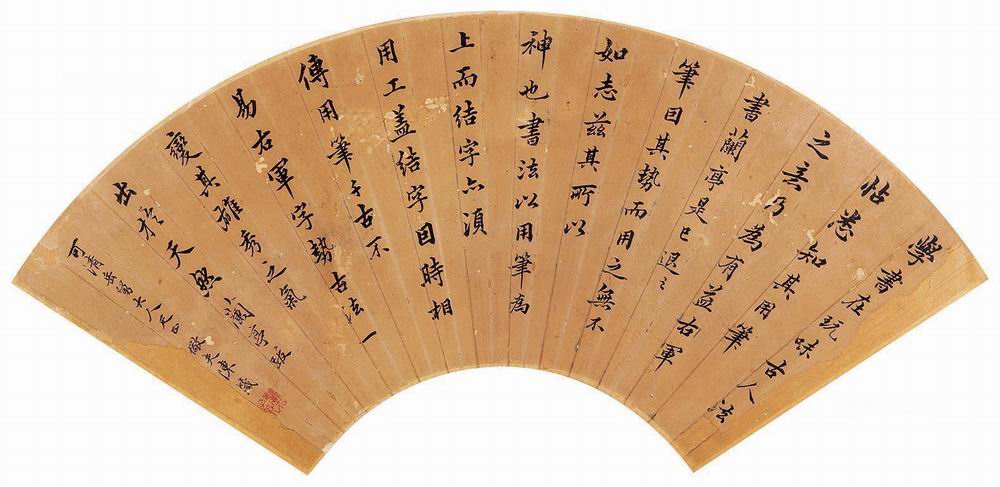 學書在玩味古人法
帖悉知其用筆
之意乃為有益右軍
書蘭亭是已退之
筆因其勢而用之無不
如志茲其所以
神也書法以用筆為
上而結字亦須
用工蓋結字因時相
傳用筆千古不
易右軍字勢古法一
變其雄秀之氣
出於天然 蘭亭跋
可清岳翁大人正